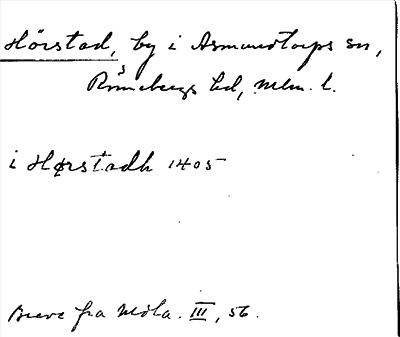 Hörstad, by i Asmundtorps sn,
Rönnebergs hd, Mlm. l.
i Hørstadh 1405
Breve fra Midla. III, 56.